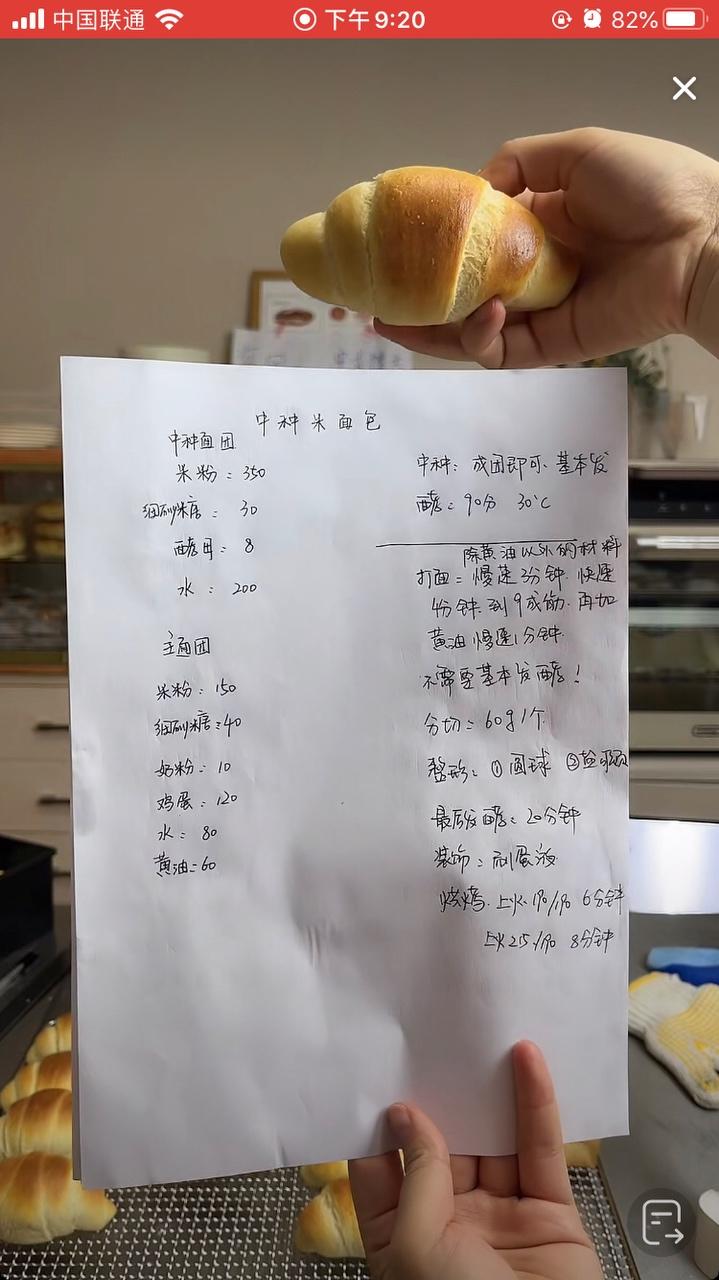 中国联通
下午9:20
82%
中种米面包
中种面团
米粉：350
细砂糖：30
酵母：8
水：200
主面团
米粉：150
细砂糖：40
奶粉：10
鸡蛋：120
水：80
黄油：60
中种：成团即可、基本发
酵：90分 30℃
除黄油以外的材料
打面：慢速3分钟 快速
4分钟 到9成筋 再加
黄油 慢速1分钟
不需要基本发酵！
分切：60g1个
整形：①圆球 ②
最后发酵：20分钟
装饰：刷蛋液
烘烤 上火190/190 6分钟
上火215/190 8分钟